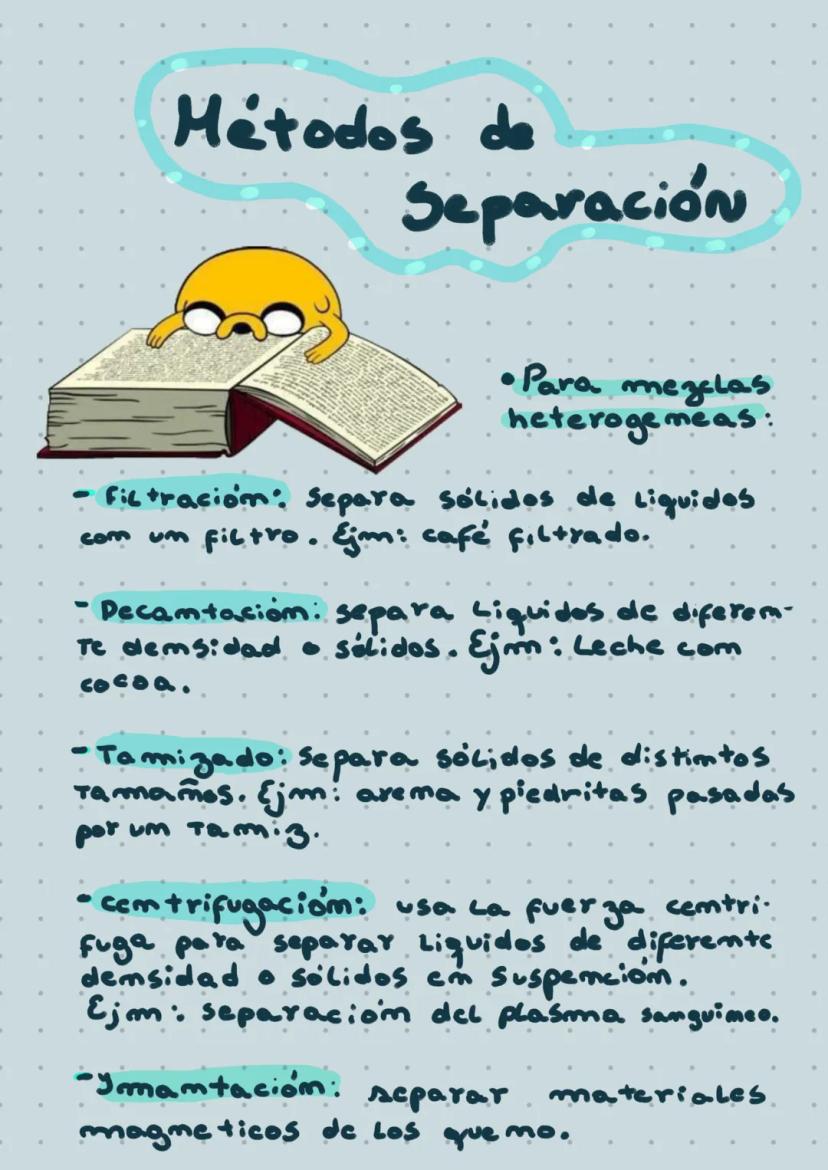 Métodos de
Separación
•Para mezclas
heterogeneas:
- Filtración: separa sólidos de liquidos
con un filtro. Ejm: café filtrado.
- Decantación: separa liquidos de diferen-
te densidad o sólidos. Ejm: Leche con
cocoa.
- Tamizado: separa sólidos de distintos
tamaños. Ejm: arena y piedritas pasadas
por un tamiz.
- centrifugación: usa la fuerza centri-
fuga para separar liquidos de diferente
densidad o sólidos en suspención.
Ejm: separación del plasma sanguineo.
- Ymantación: separar materiales
magneticos de los que no.